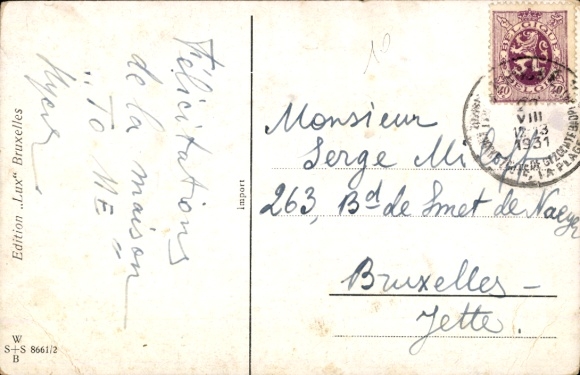 Félicitations
de la maison
„To ME"
Edition „Lux" Bruxelles
W
S+S 8661/2
B
Import
10
BELGIQUE BELGIË
40 40
VIII
12-13
1931
Monsieur
Serge
263, Bd de Smet de Naeyer
Bruxelles –
Jette.